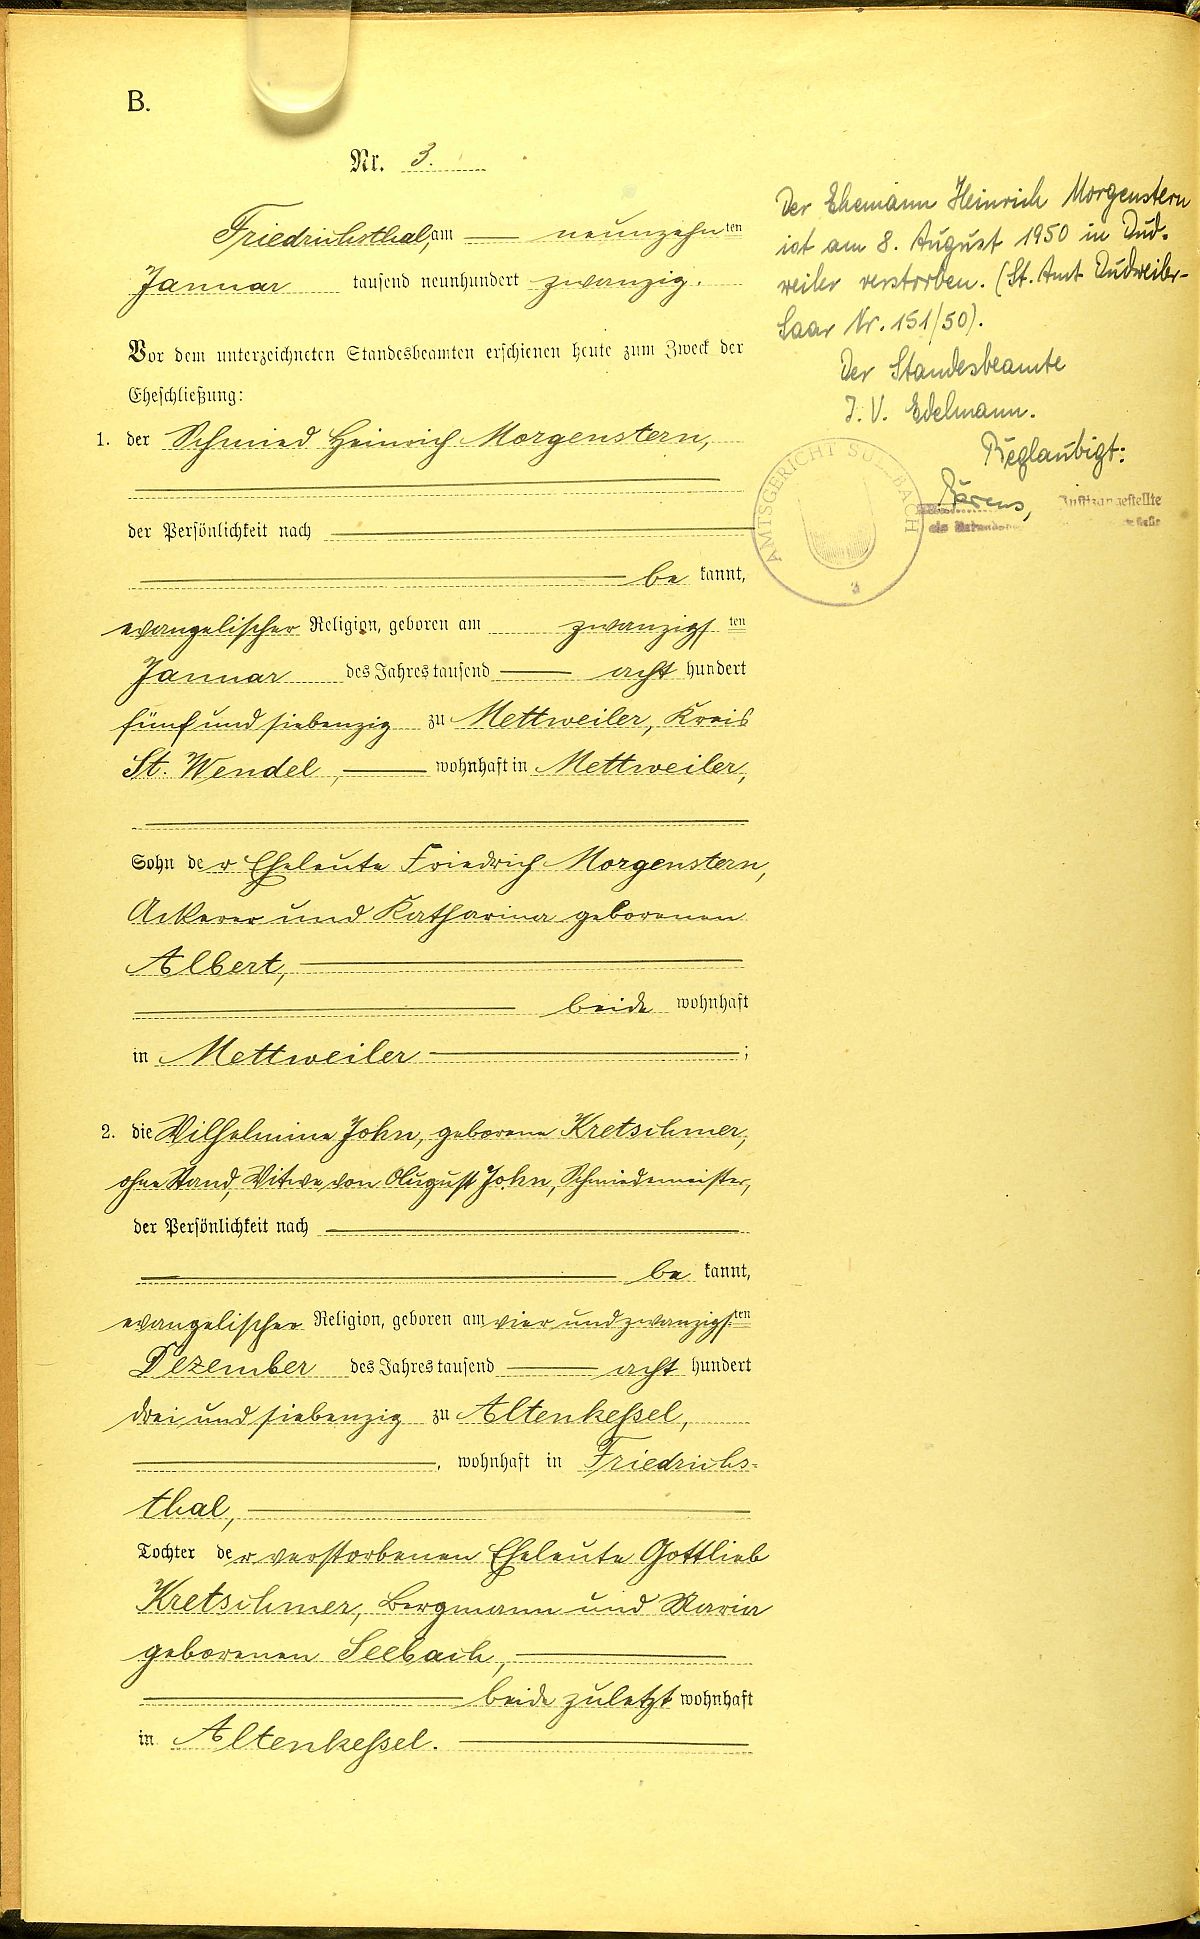 B.
Nr. 3.
Friedrichsthal, am neunzehnten
Januar tausend neunhundert zwanzig.
Vor dem unterzeichneten Standesbeamten erschienen heute zum Zweck der
Eheschließung:
1. der Schmied Heinrich Morgenstern,
der Persönlichkeit nach
be kannt,
evangelischer Religion, geboren am zwanzigsten
Januar des Jahres tausend acht hundert
fünf und siebenzig zu Mettweiler, Kreis
St. Wendel, wohnhaft in Mettweiler,
Sohn der Eheleute Friedrich Morgenstern,
Ackerer und Katharina geborenen
Albert,
beide wohnhaft
in Mettweiler ;
2. die Wilhelmine John, geborene Kretschmer,
ohne Stand, Witwe von August John, Schmiedemeister,
der Persönlichkeit nach
be kannt,
evangelischer Religion, geboren am vier und zwanzigsten
Dezember des Jahres tausend acht hundert
drei und siebenzig zu Altenkessel,
, wohnhaft in Friedrichs-
thal,
Tochter der verstorbenen Eheleute Gottlieb
Kretschmer, Bergmann und Maria
geborenen Seebach,
beide zuletzt wohnhaft
in Altenkessel.
Der Ehemann Heinrich Morgenstern
ist am 8. August 1950 in Dud-
weiler verstorben. (St. Amt Dudweiler-
Saar Nr. 151/50).
Der Standesbeamte
I. V. Edelmann.
Beglaubigt:
Justizangestellte
AMTSGERICHT SULZBACH
3